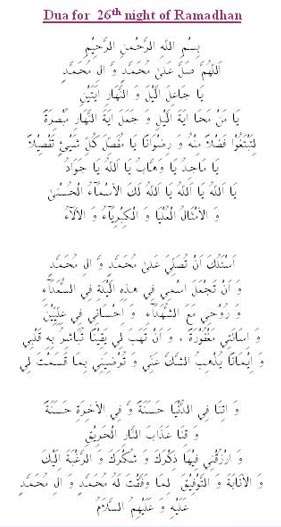 Dua for 26th night of Ramadhan
بِسْمِ اللهِ الرَّحْمٰنِ الرَّحِيْمِ
اَللّٰهُمَّ صَلِّ عَلىٰ مُحَمَّدٍ وَّ اٰلِ مُحَمَّدٍ
يَا جَاعِلَ الَّيْلِ وَ النَّهَارِ اٰيَتَيْنِ
يَا مَنْ مَحَا اٰيَةَ الَّيْلِ وَ جَعَلَ اٰيَةَ النَّهَارِ مُبْصِرَةً
لِتَبْتَغُوْا فَضْلاً مِنْهُ وَ رِضْوَانًا يَا مُفَصِّلَ كُلِّ شَيْئٍ تَفْصِيْلاً
يَا مَاجِدُ يَا وَهَّابُ يَا اَللهُ يَا جَوَادُ
يَا اَللهُ يَا اَللهُ يَا اَللهُ لَكَ الْاَسْمَآءُ الْحُسْنىٰ
وَ الْاَمْثَالُ الْعُلْيَا وَ الْكِبْرِيَآءُ وَ الْاٰلَآءُ
اَسْئَلُكَ اَنْ تُصَلِّىَ عَلىٰ مُحَمَّدٍ وَّ اٰلِ مُحَمَّدٍ
وَ اَنْ تَجْعَلَ اسْمِي فِي هٰذِهِ اللَّيْلَةِ فِي السُّعَدَآءِ
وَ رُوْحِي مَعَ الشُّهَدَآءِ وَ اِحْسَانِي فِي عِلِّيِّيْنَ
وَ اِسَائَتِي مَغْفُوْرَةً ، وَ اَنْ تَهَبَ لِي يَقِيْنًا تُبَاشِرُ بِهِ قَلْبِي
وَ اِيْمَانًا يَذْهَبُ الشَّكَّ عَنِّي وَ تُرْضِيَنِي بِمَا قَسَمْتَ لِي
وَ اٰتِنَا فِي الدُّنْيَا حَسَنَةً وَّ فِي الْاٰخِرَةِ حَسَنَةً
وَ قِنَا عَذَابَ النَّارِ الْحَرِيْقِ
وَ ارْزُقْنِي فِيْهَا ذِكْرَكَ وَ شُكْرَكَ وَ الرَّغْبَةَ اِلَيْكَ
وَ الْاِنَابَةَ وَ التَّوْفِيْقَ لِمَا وَفَّقْتَ لَهُ مُحَمَّدَ وَّ اٰلِ مُحَمَّدٍ
عَلَيْهِ وَ عَلَيْهِمُ السَّلَامُ